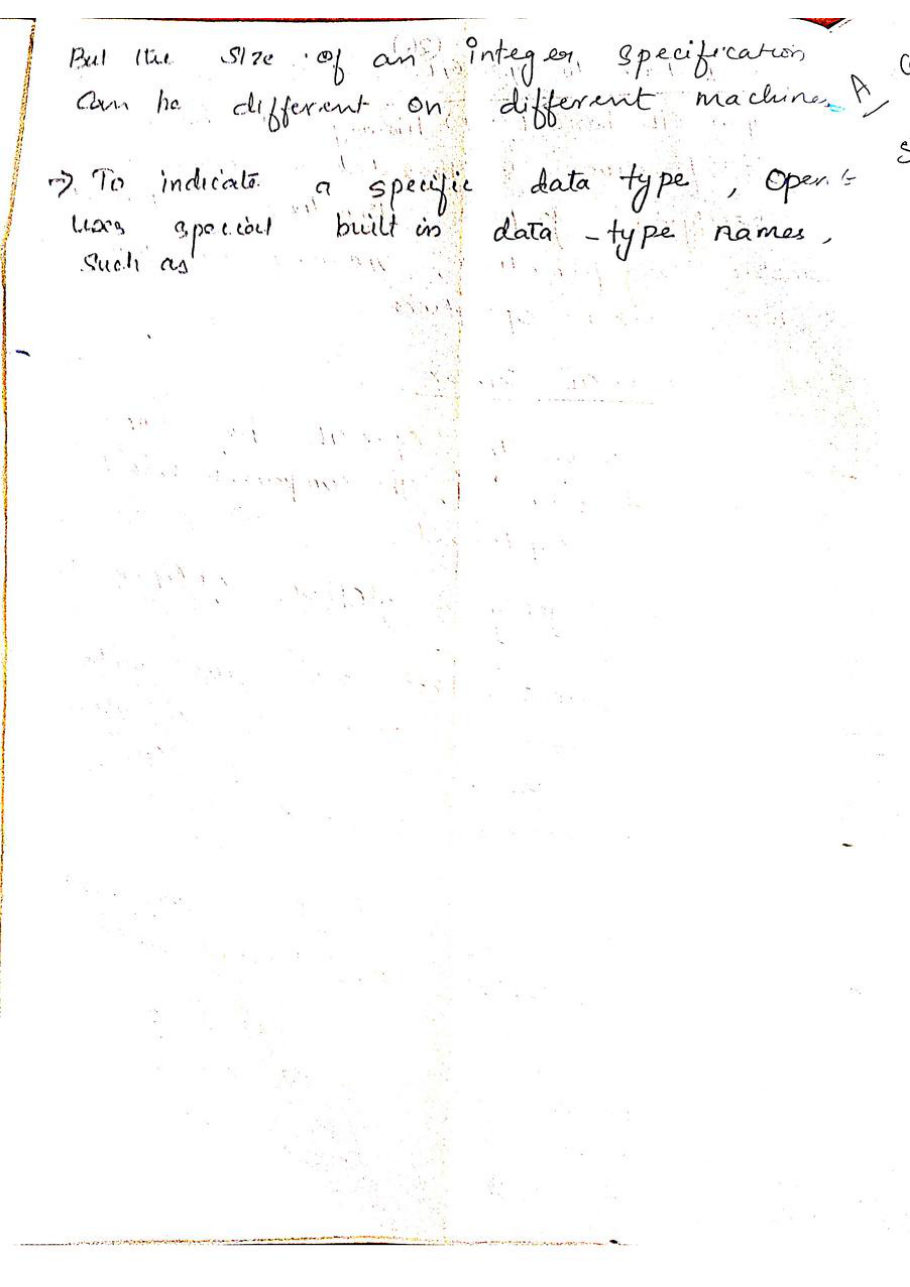 But the size of an integer specification
Can be different on different machines
→ To indicate a specific data type,
uses special built in data-type names,
Such as